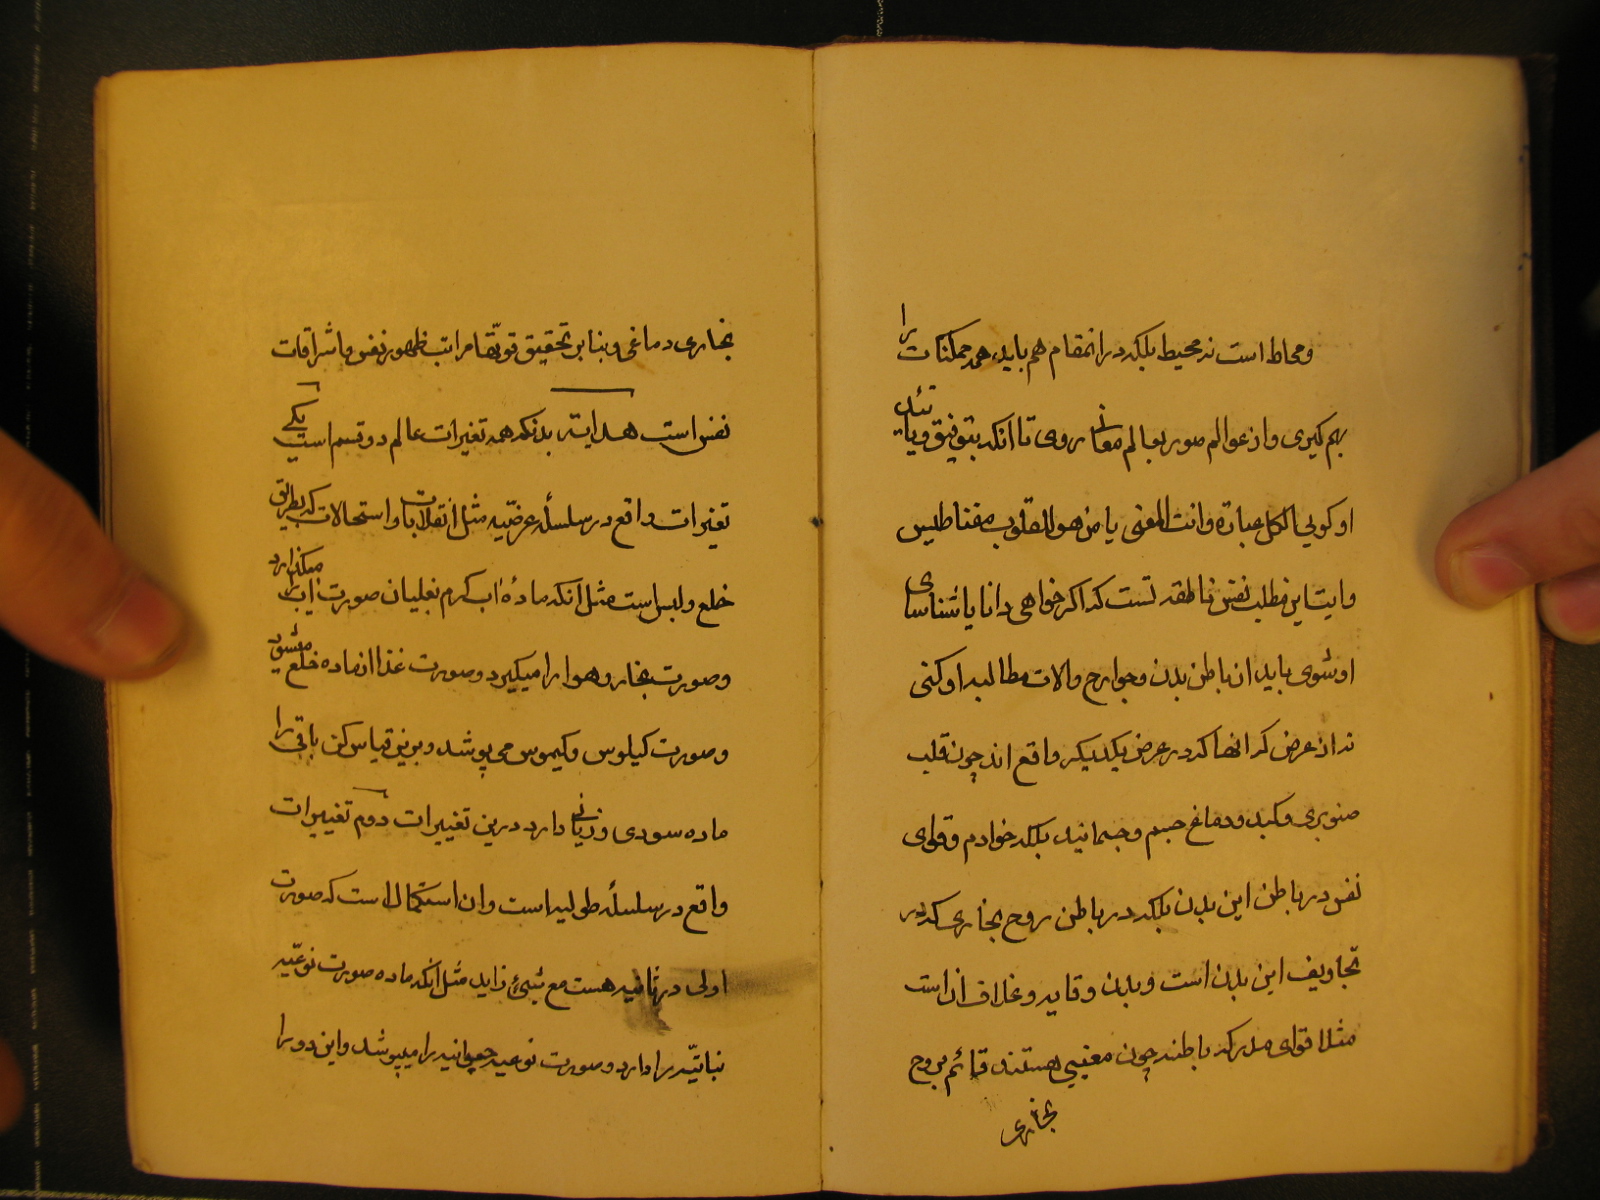 و محاط است نه محیط بلکه در انمقام هم باید همه ممکنات را
بهم کیری و از عوالم صور بعالم معانی روی تا انکه بتوفیق و تائید
او کوئی الکل عبارة وانت المعنی یا من هو للقلوب مغناطیس
وایت این مطلب نفس ناطقه تست که اکر خواهی دانا یا شناسای
او شوی باید ان باطن بدن و جوارح والات مطالبه او کنی
نه از عرض که انها که در عرض یکدیکر واقع اند چون قلب
صنوبری و کبد و دماغ جسم و جسمانیند بلکه خوادم و قوای
نفس در باطن این بدن بلکه در باطن روح بخاری که در
تجاویف این بدن است و بدن وقایه و غلاف ان است
مثلا قوای مدرکه باطنه چون معنیی هستند قائم بروح
بخاری
بخاری دماغی و بنا بر تحقیق قوتها مراتب ظهور نفس و اشراقات
نفس است هدایة بدانکه همه تغیرات عالم دو قسم است یکی
تغیرات واقع در سلسلهٔ عرضیّه مثل انقلابات و استحالات که بطریق
خلع و لبس است مثل انکه مادهٔ اب کرم بغلیان صورت اب را میکذارد
وصورت بخار و هوا را میکیرد وصورت غذا از ماده خلع میشود
وصورت کیلوس وکیموس می پوشد و برین قیاس کن باقی را
ماده سودی و زیانی دارد درین تغییرات دوم تغییرات
واقع در سلسلهٔ طولیه است وان استکمال است که صورت
اولی در ثانیه هست مع شیئ زاید مثل انکه ماده صورت نوعیّه
نباتیّه را دارد وصورت نوعیه حیوانیه را میپوشد واین دو را